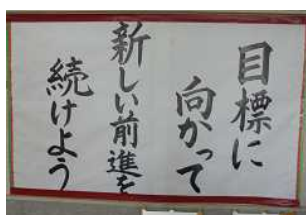 目標に
向かって
新しい前進を
続けよう